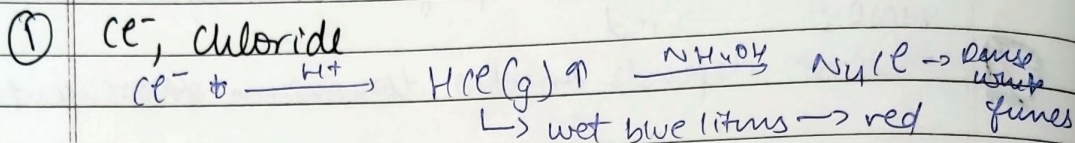 ① Cl⁻, Chloride
Cl⁻ + —H+→ HCl(g)↑ —NH4OH→ N4Cl → Dense white fumes
↳ wet blue litms → red